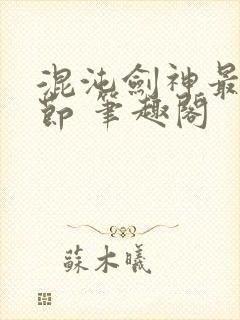 混沌劍神最
節 筆趣閣
蘇木曦